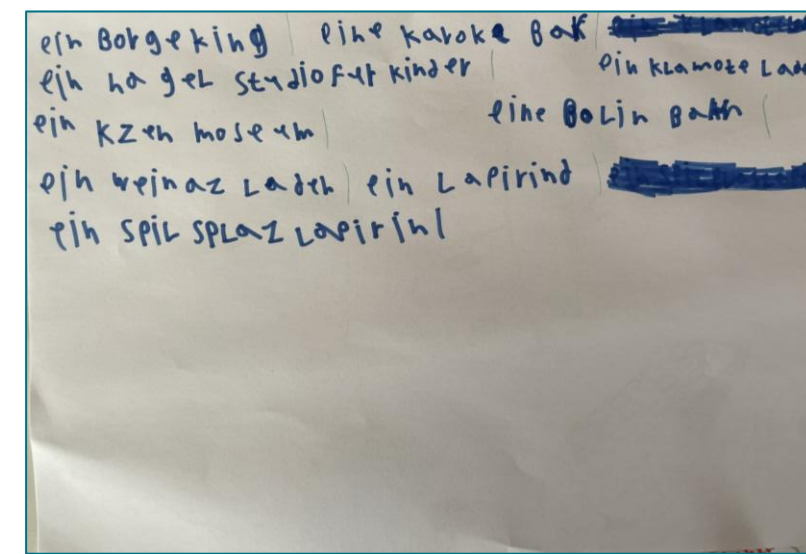 ein Borgeking | eine karoke Bar
ein nagel studio fur kinder | ein kLamote Lade
ein kzen moseum | eine BoLin Bahn |
ein weinaz Laden | ein Lapirind |
ein spiL spLaz Lapirint